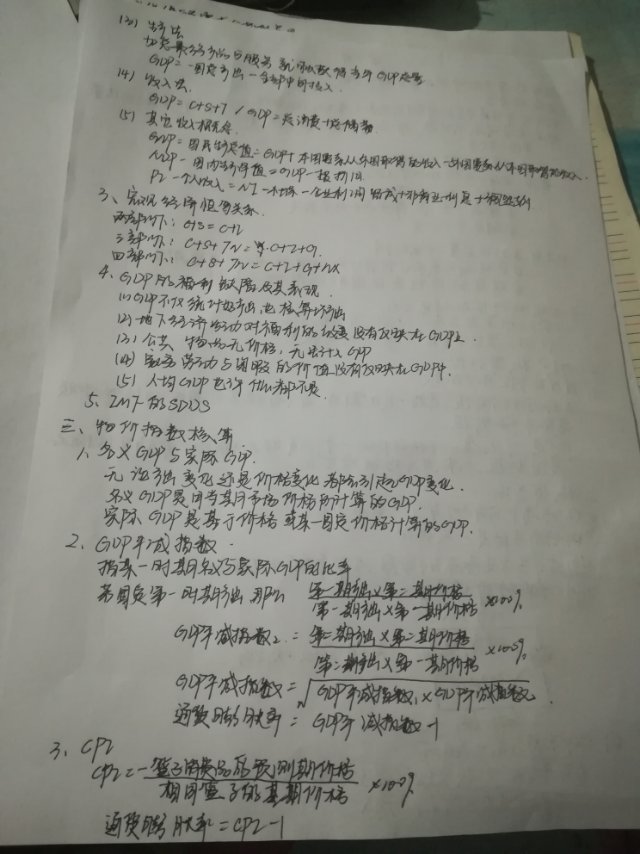 (3) 生产法
GDP=一国总产出-全部中间投入
(4) 收入法
GDP=C+S+T / GDP=总消费+总储蓄
(5) 其它收入相关概念
GNP=国民生产总值=GDP+本国要素从外国取得的收入-外国要素从本国取得的收入
NDP-国内生产净值=GDP-折旧
PI-个人收入=NI-
3、宏观经济恒等关系
两部门下: C+S=C+I
三部门下: C+S+TN=C+I+G
四部门下: C+S+TN=C+I+G+NX
4、GDP的福利缺陷及其表现
(1)GDP不仅统计好产出也核算坏产出
(2)地下经济活动对福利的改变没有反映在GDP上
(3)公共物品无价格,无法计入GDP
(4)家务劳动与闲暇的价值没有反映在GDP中
(5)人均GDP也许什么都不是
5、IMF的SDDS
三、物价指数核算
1、名义GDP与实际GDP
无论产出变化还是价格变化都会引起GDP变化
名义GDP是用当期市场价格所计算的GDP.
实际GDP是基于价格或某一固定价格计算的GDP.
2、GDP平减指数
指某一时期名义与实际GDP的比率
若固定第一时期产出 那么 第一期产出×第二期价格
第一期产出×第一期价格 ×100%
GDP平减指数2=第二期产出×第二期价格
第二期产出×第一期价格 ×100%
GDP平减指数=√GDP平减指数1×GDP平减指数2
通货膨胀率=GDP平减指数-1
3、CPI
CPI=一篮子消费品的预测期价格
相同篮子的基期价格 ×100%
通货膨胀率=CPI-1